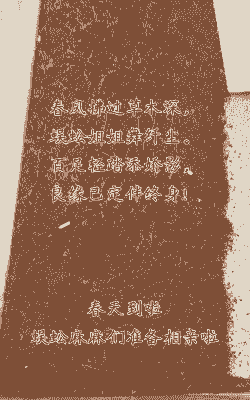 春风拂过草木深，
蜈蚣姐姐舞纤尘。
百足轻踏添娇影，
良缘已定伴终身!
春天到啦
蜈蚣麻麻们准备相亲啦